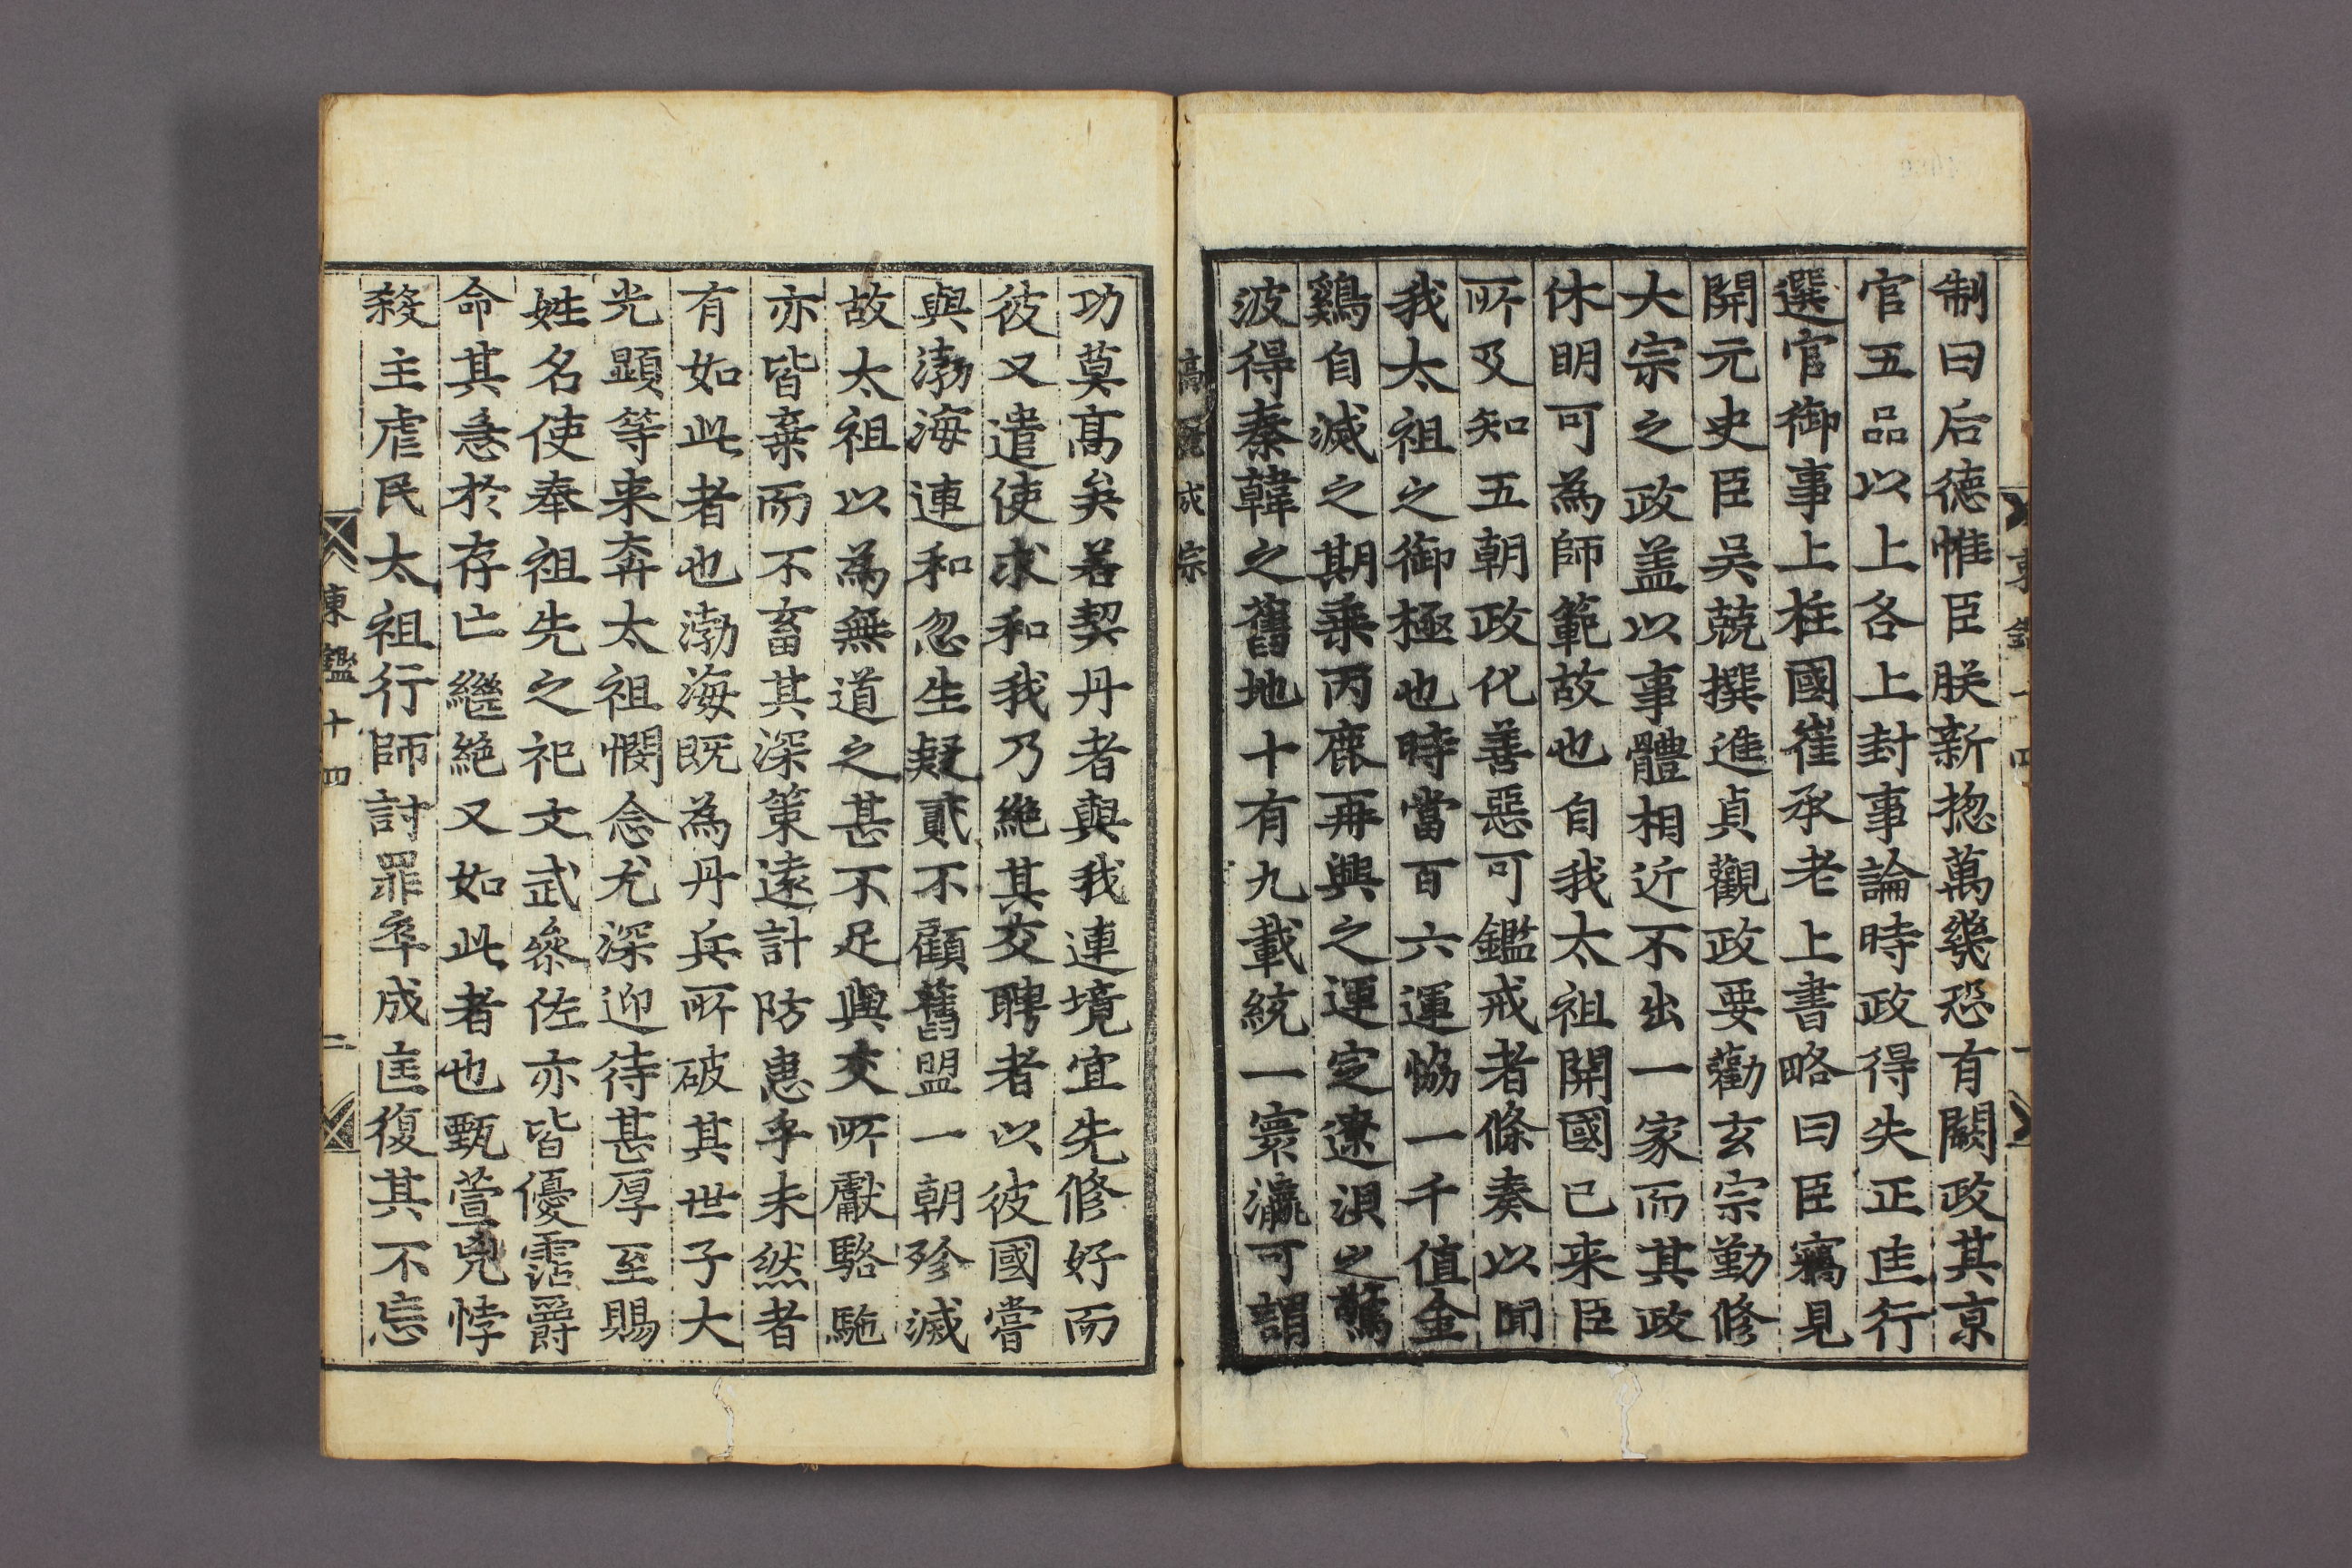 制曰后德惟臣朕新揔萬幾恐有闕政其京
官五品以上各上封事論時政得失正匡行
選官御事上柱國崔承老上書略曰臣竊見
開元史臣吳兢撰進貞觀政要勸玄宗勤修
大宗之政盖以事體相近不出一家而其政
休明可為師範故也自我太祖開國已来臣
所及知五朝政化善惡可鑑戒者條奏以聞
我太祖之御極也時當百六運恊一千值金
鷄自滅之期乗丙鹿再興之運定遼浿之驚
波得秦韓之舊地十有九載統一寰瀛可謂
高麗成宗
功莫高矣若契丹者與我連境宜先修好而
彼又遣使求和我乃絶其交聘者以彼國嘗
與渤海連和忽生疑貳不顧舊盟一朝殄滅
故太祖以為無道之甚不足與交所獻駱駞
亦皆棄而不畜其深策遠計防患乎未然者
有如此者也渤海既為丹兵所破其世子大
光顯等来奔太祖憫念尤深迎待甚厚至賜
姓名使奉祖先之祀文武叅佐亦皆優霑爵
命其急於存亡繼絶又如此者也甄萱兇悖
殺主虐民太祖行師討罪卒成匡復其不忘
東鑑十四
二